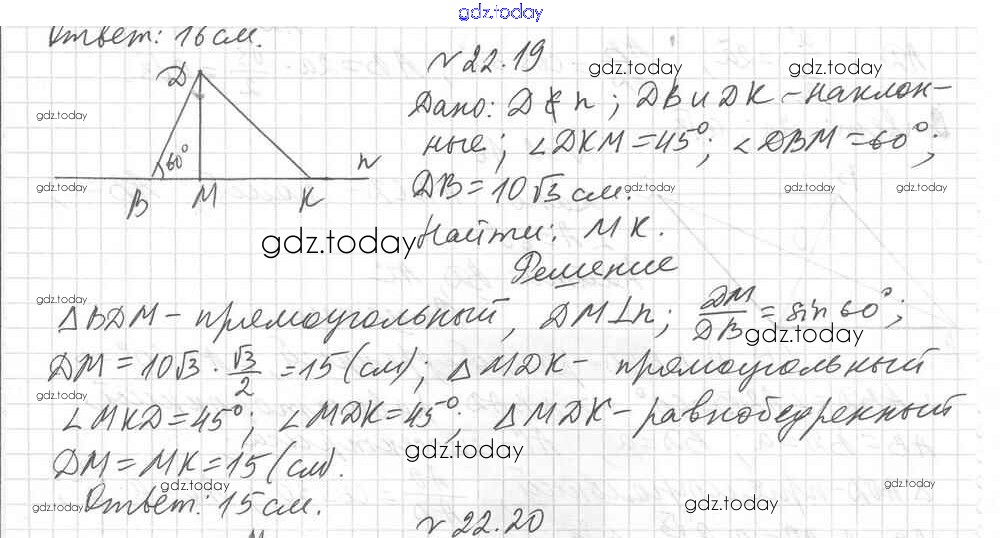 gdz.today
Ответ: 16 см.
N 22.19
gdz.today gdz.today
Дано: D ∉ n; DB и DK - наклон-
ные; ∠DKM = 45°; ∠DBM = 60°;
DB = 10√3 см.
Найти: MK.
Решение
D
60°
n
B M K
gdz.today
gdz.today gdz.today gdz.today gdz.today
gdz.today
gdz.today
△BDM - прямоугольный, DM⊥n; DM/DB = sin 60°;
gdz.today
DM = 10√3 · √3/2 = 15 (см); △MDK - прямоугольный
gdz.today
∠MKD = 45°; ∠MDK = 45°; △MDK - равнобедренный
gdz.today
DM = MK = 15 (см).
gdz.today gdz.today
Ответ: 15 см.
gdz.today gdz.today
N 22.20